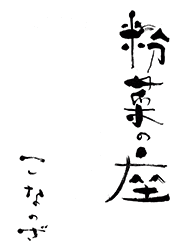 粉菓の座
こなのざ